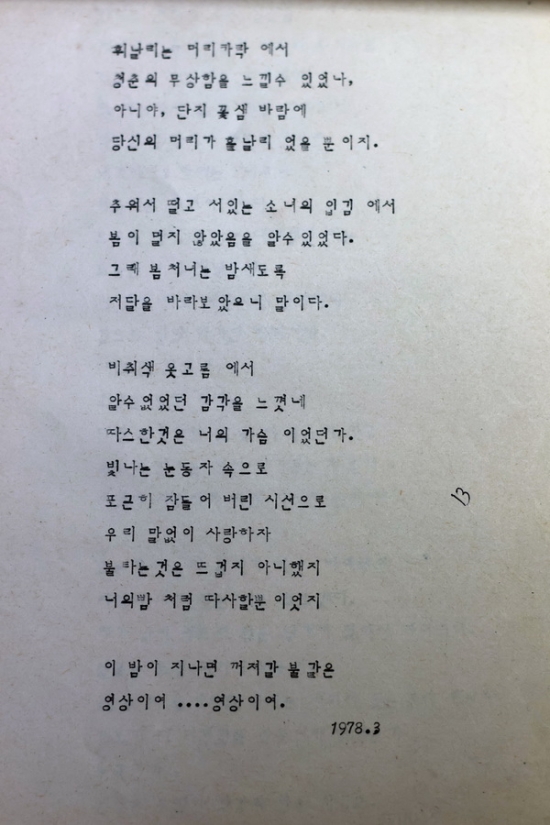 휘날리는 머리가락 에서
청춘의 무상함을 느낄수 있었나,
아니야, 단지 꽃샘 바람에
당신의 머리가 흩날리 었을 뿐이지.
추워서 떨고 서있는 소녀의 입김 에서
봄이 멀지 않았음을 알수있었다.
그래 봄처녀는 밤새도록
저달을 바라보았으니 말이다.
비취색 옷고름 에서
알수없었던 감각을 느꼇네
따스한것은 너의 가슴 이었던가.
빛나는 눈동자 속으로
포근히 잠들어 버린 시선으로
우리 말없이 사랑하자
불타는것은 뜨겁지 아니했지
너의밤 처럼 따사할뿐이엇지
이 밤이 지나면 꺼져갈 불같은
영상이어 ....영상이어.
1978.3
13